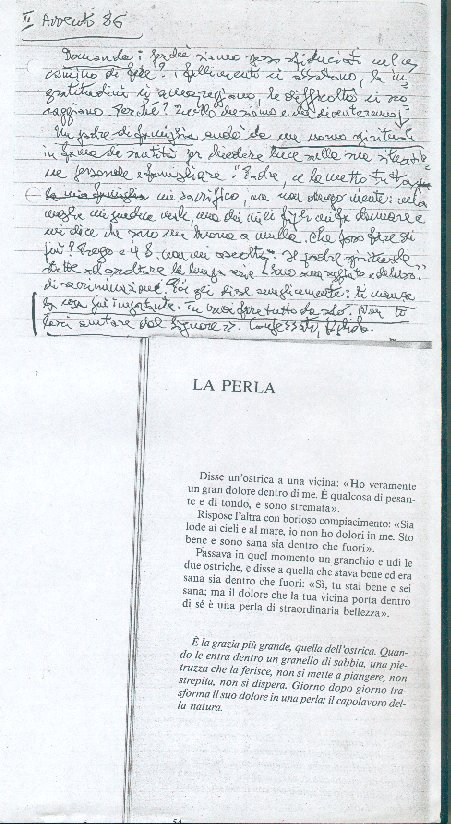 II Avvento 86
Domanda: Perché siamo spesso sfiduciati nel ns
cammino di fede? I fallimenti ci assalano, la in
gratitudini ci amareggiano, le difficoltà ci sco
raggiano. Perché?
Un padre di famiglia andò da un uomo spirituale
in fama di santità per chiedere luce sulla sua situazio
ne personale e famigliare. "Padre, ce la metto tutta
la mia famiglia mi sacrifico, ma non ottengo niente: mia
moglie mi giudica male, uno dei miei figli mi fa dannare e
mi dice che sono un buono a nulla. Che posso fare di
più? Prego e il S. non mi ascolta". Il padre spirituale
stette ad ascoltare
Poi gli disse semplicemente: ti manca
la cosa più importante. Tu vuoi fare tutto da solo. Non ti
lasci aiutare dal Signore". Confessati, figliolo.
LA PERLA
Disse un'ostrica a una vicina: «Ho veramente
un gran dolore dentro di me. È qualcosa di pesan-
te e di tondo, e sono stremata».
Rispose l'altra con borioso compiacimento: «Sia
lode ai cieli e al mare, io non ho dolori in me. Sto
bene e sono sana sia dentro che fuori».
Passava in quel momento un granchio e udì le
due ostriche, e disse a quella che stava bene ed era
sana sia dentro che fuori: «Sì, tu stai bene e sei
sana; ma il dolore che la tua vicina porta dentro
di sé è una perla di straordinaria bellezza».
È la grazia più grande, quella dell'ostrica. Quan-
do le entra dentro un granello di sabbia, una pie-
truzza che la ferisce, non si mette a piangere, non
strepita, non si dispera. Giorno dopo giorno tra
sforma il suo dolore in una perla: il capolavoro del-
la natura.
54